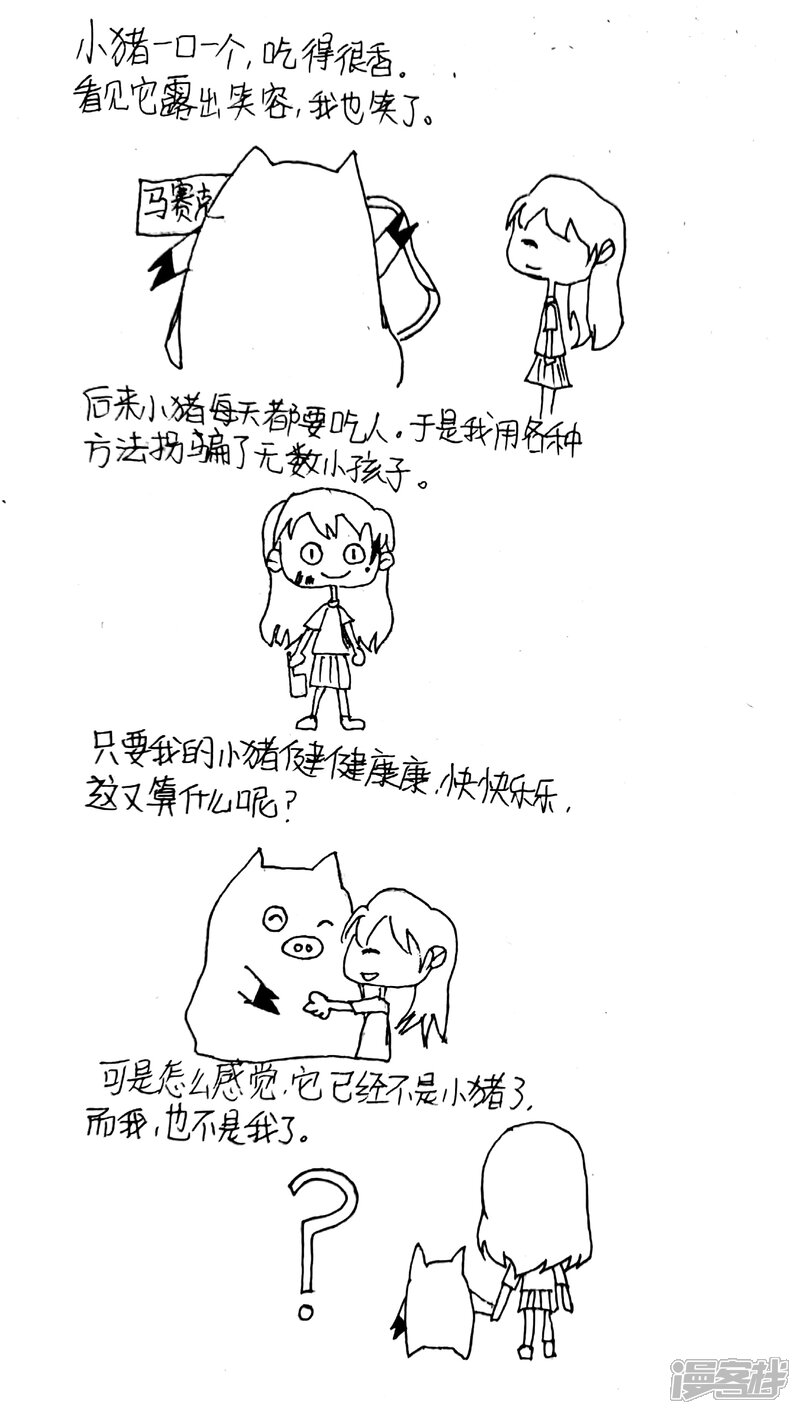 小猪一口一个，吃得很香。
看见它露出笑容，我也笑了。
马赛克
后来小猪每天都要吃人。于是我用各种
方法拐骗了无数小孩子。
只要我的小猪健健康康，快快乐乐，
这又算什么呢？
可是怎么感觉，它已经不是小猪了，
而我，也不是我了。
？
漫客栈